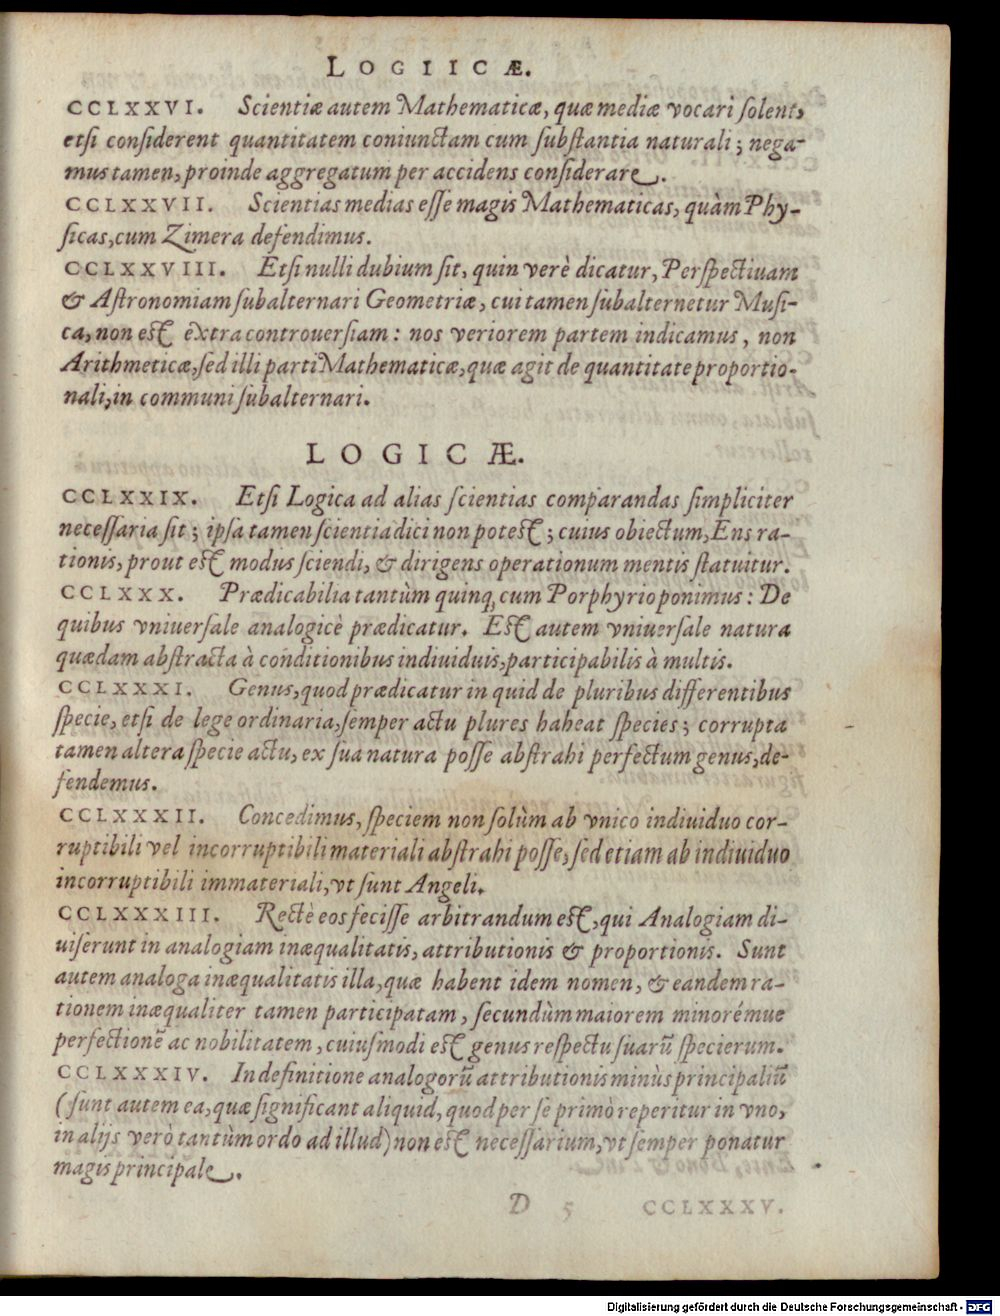 LOGIICÆ.
CCLXXVI. Scientiæ autem Mathematicæ, quæ mediæ vocari ſolent,
etſi conſiderent quantitatem coniunctam cum ſubſtantia naturali; nega-
mus tamen, proinde aggregatum per accidens conſiderare.
CCLXXVII. Scientias medias eſſe magis Mathematicas, quàm Phy-
ſicas, cum Zimera defendimus.
CCLXXVIII. Etſi nulli dubium ſit, quin verè dicatur, Perſpectiuam
& Aſtronomiam ſubalternari Geometriæ, cui tamen ſubalternetur Muſi-
ca, non eſt extra controuerſiam: nos veriorem partem indicamus, non
Arithmeticæ, ſed illi parti Mathematicæ, quæ agit de quantitate proportio-
nali, in communi ſubalternari.
LOGICÆ.
CCLXXIX. Etſi Logica ad alias ſcientias comparandas ſimpliciter
neceſſaria ſit; ipſa tamen ſcientia dici non poteſt; cuius obiectum, Ens ra-
tionis, prout eſt modus ſciendi, & dirigens operationum mentis ſtatuitur.
CCLXXX. Prædicabilia tantùm quinq, cum Porphyrio ponimus: De
quibus vniuerſale analogicè prædicatur. Eſt autem vniuerſale natura
quædam abſtracta à conditionibus indiuiduis, participabilis à multis.
CCLXXXI. Genus, quod prædicatur in quid de pluribus differentibus
ſpecie, etſi de lege ordinaria, ſemper actu plures haheat ſpecies; corrupta
tamen altera ſpecie actu, ex ſua natura poſſe abſtrahi perfectum genus, de-
fendemus.
CCLXXXII. Concedimus, ſpeciem non ſolùm ab vnico indiuiduo cor-
ruptibili vel incorruptibili materiali abſtrahi poſſe, ſed etiam ab indiuiduo
incorruptibili immateriali, vt ſunt Angeli.
CCLXXXIII. Rectè eos feciſſe arbitrandum eſt, qui Analogiam di-
uiſerunt in analogiam inæqualitatis, attributionis & proportionis. Sunt
autem analoga inæqualitatis illa, quæ habent idem nomen, & eandem ra-
tionem inæqualiter tamen participatam, ſecundùm maiorem minorémue
perfectionẽ ac nobilitatem, cuiuſmodi eſt genus reſpectu ſuarũ ſpecierum.
CCLXXXIV. In definitione analogorũ attributionis minùs principaliũ
(ſunt autem ea, quæ ſignificant aliquid, quod per ſe primò reperitur in vno,
in alijs verò tantùm ordo ad illud) non eſt neceſſarium, vt ſemper ponatur
magis principale.
D 5 CCLXXXV.
Digitalisierung gefördert durch die Deutsche Forschungsgemeinschaft - DFG